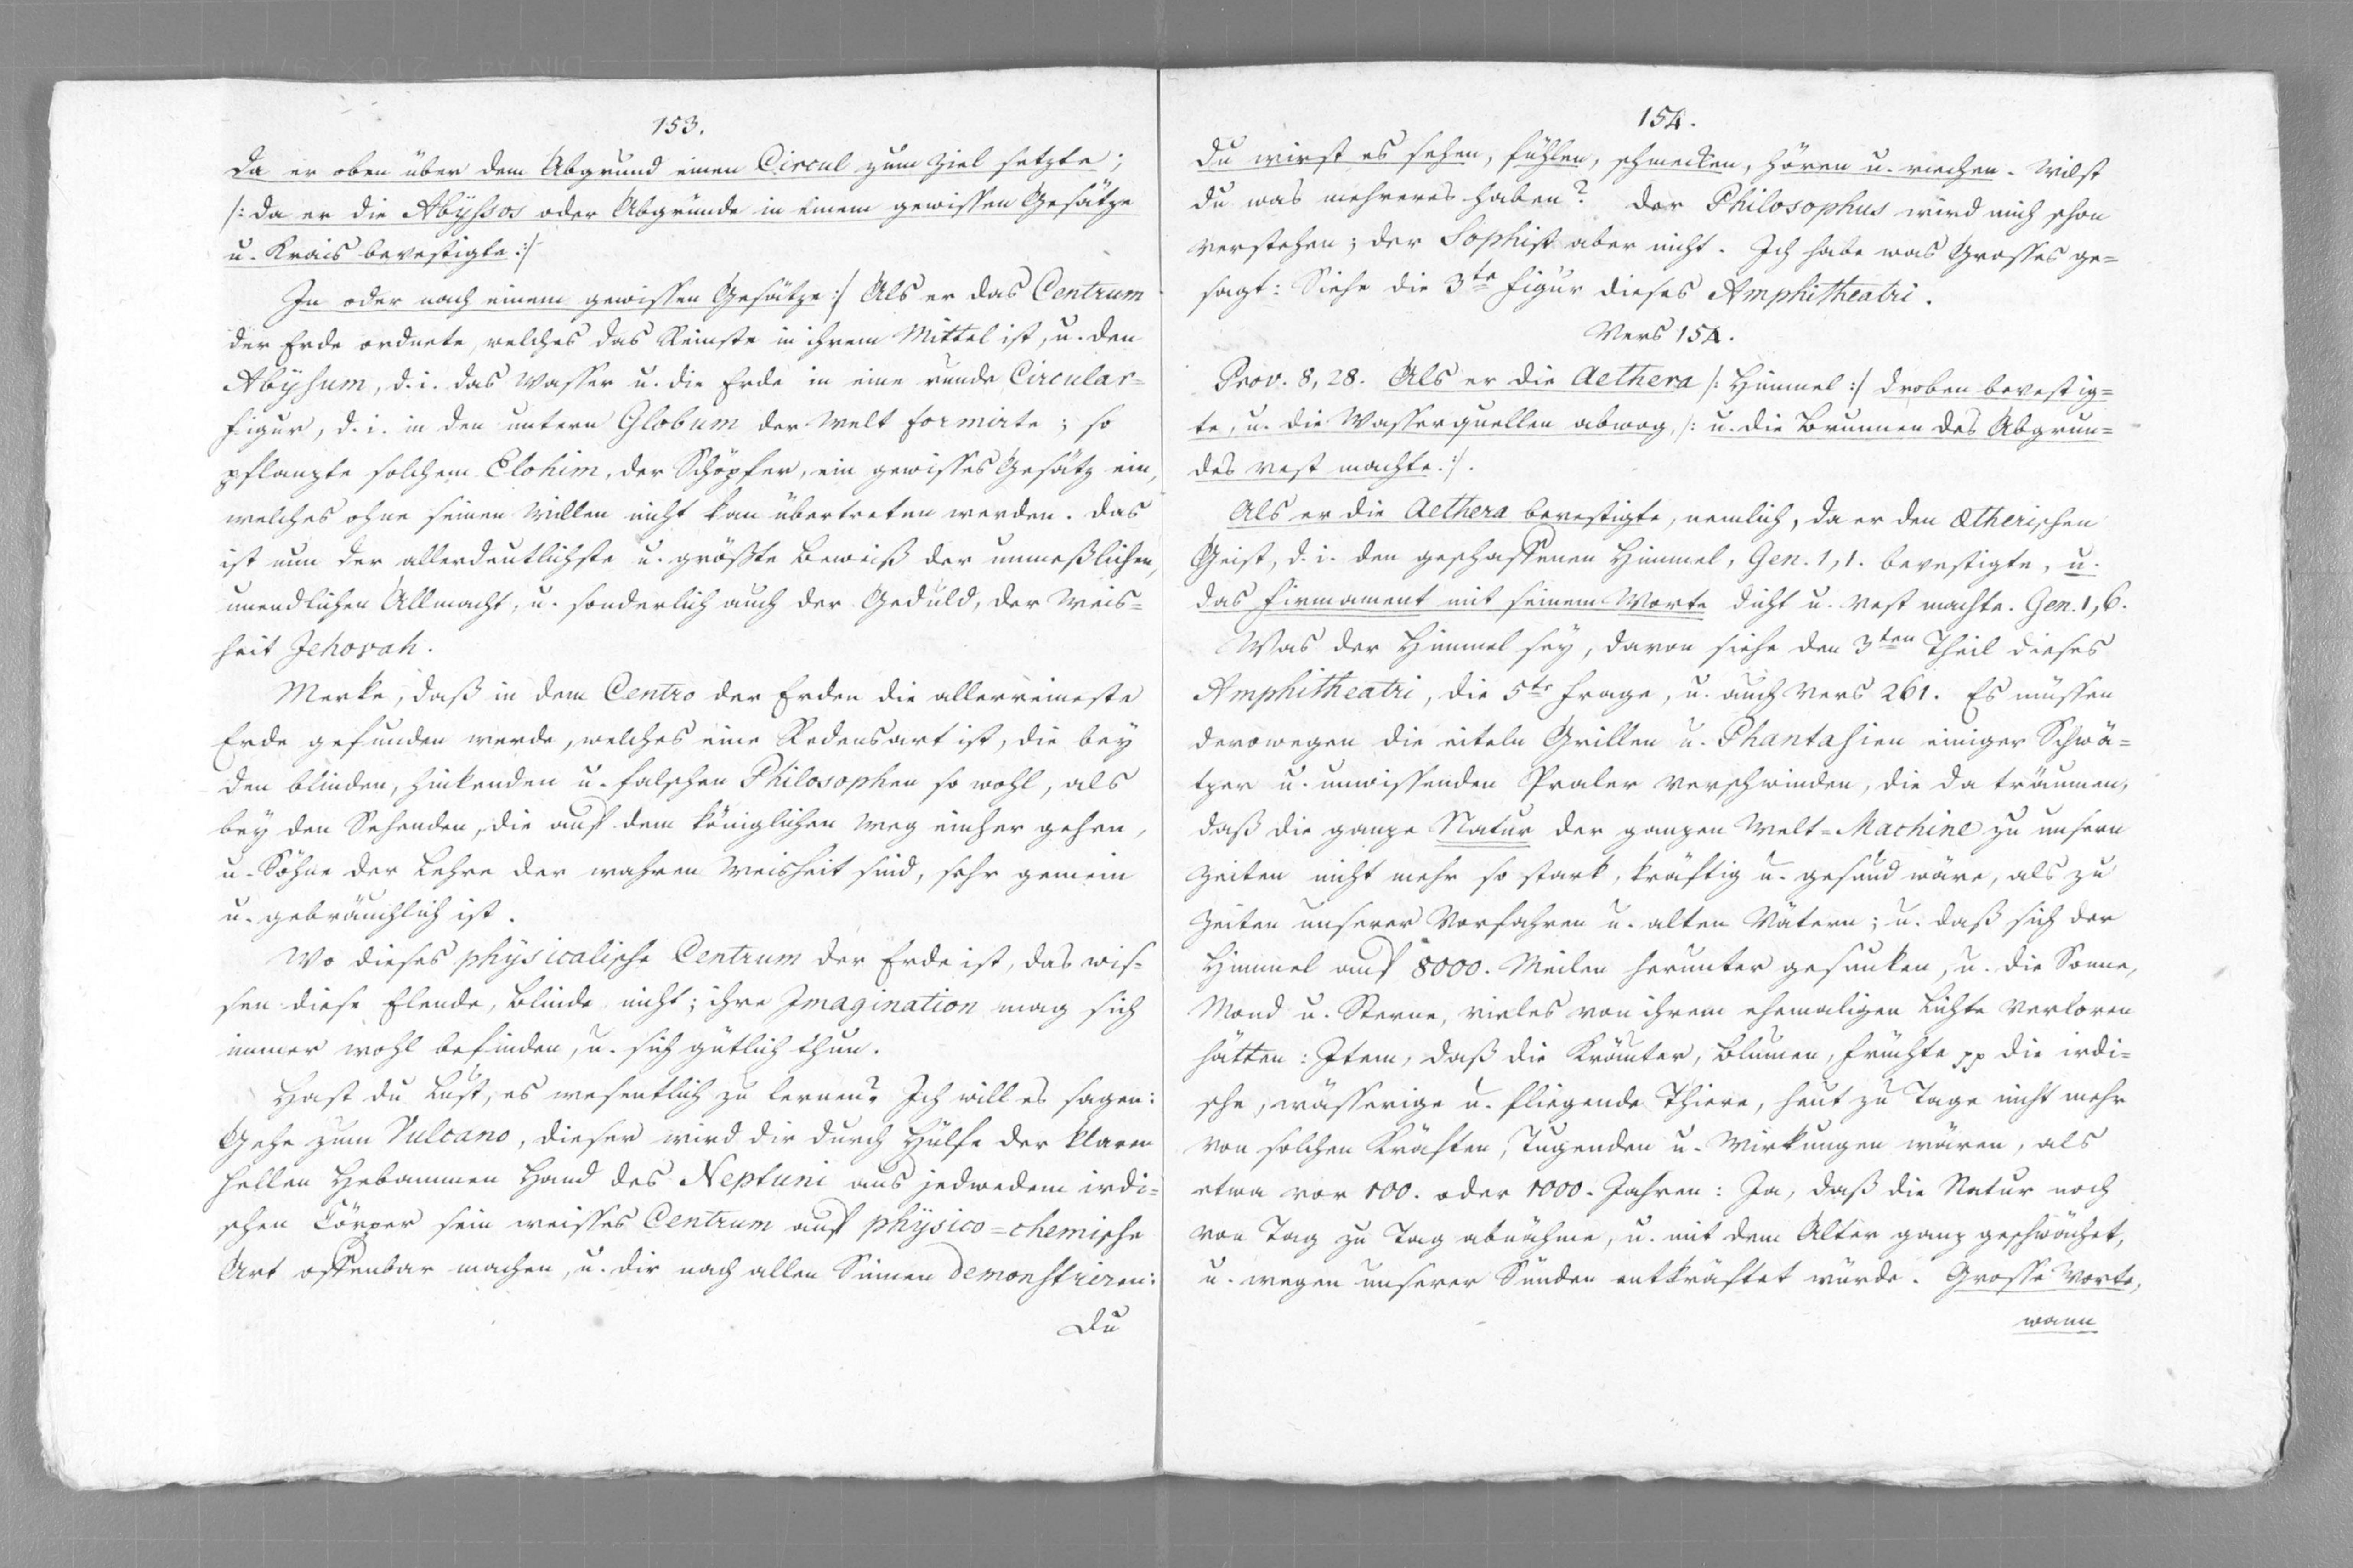 153.
Da er oben über dem Abgrund einen Circul zum Ziel setzte;
/: Da er die Abyssos oder Abgründe in einem gewissen Gesätze
u. Krais bevestigte :/
In oder nach einem gewissen Gesätze :/ Als er das Centrum
der Erde ordnete, welches das Reinste in ihrem Mittel ist, u. den
Abÿsum, d. i. das Wasser u. die Erde in eine runde Circular=
figur, d. i. in den untern Globum der Welt formirte; so
pflanzte solchem Elohim, der Schöpfer, ein gewisses Gesätz ein,
welches ohne seinen Willen nicht kan übertretten werden. Das
ist nun der allerdeutlichste u. größte Beweiß der unmeßlichen,
unendlichen Allmacht, u. sonderlich auch der Gedult, der Weis=
heit Jehovah.
Merke, daß in dem Centro der Erden die allerreineste
Erde gefunden werde, welches eine Redensart ist, die bey
den blinden, hinkenden u. falschen Philosophen so wohl, als
bey den Sehenden, die auf dem königlichen Weg einher gehen,
u. Söhne der Lehre der wahren Weisheit sind, sehr gemein
u. gebräuchlich ist.
Wo dieses physicalische Centrum der Erde ist, das wis=
sen diese Elende, Blinde nicht; ihre Imagination mag sich
immer wohl befinden, u. sich gütlich thun.
Hast du Lust, es wesentlich zu lernen? Ich will es sagen:
Gehe zum Vulcano, dieser wird dir durch Hülfe der klaren
hellen Hebammen Hand des Neptuni aus jedwedem irdi=
schen Cörper sein weisses Centrum auf physico=chemische
Art offenbar machen, u. dir nach allen Sinnen demonstriren:
Du
154.
du wirst es sehen, fühlen, schmecken, hören u. riechen. Wilst
du was mehreres haben? Der Philosophus wird mich schon
verstehen; der Sophist aber nicht. Ich habe was Grosses ge=
sagt: Siehe die 3te Figur dieses Amphitheatri.
Vers 154.
Prov. 8, 28. Als er die Aethera /: Himmel :/ droben bevestig=
te, u. die Wasserquellen abwog, /: u. die Brunnen des Abgrun=
des vest machte. :/.
Als er die Aethera bevestigte, nemlich, da er den Ætherischen
Geist, d. i. den geschaffenen Himmel, Gen. 1, 1. bevestigte, u.
das Firmament mit seinem Worte dicht u. vest machte. Gen. 1, 6.
Was der Himmel sey, davon siehe den 3ten Theil dieses
Amphitheatri, die 5te Frage, u. auch Vers 261. Es müssen
derowegen die eiteln Grillen u. Phantasien einiger Schwä=
tzer u. unwissenden Praler verschwinden, die da träumen,
daß die ganze Natur der ganzen Welt=Machine zu unsern
Zeiten nicht mehr so stark, kräftig u. gesund wäre, als zu
Zeiten unserer Vorfahren u. alten Vätern; u. daß sich der
Himmel auf 8000. Meilen herunter gesunken, u. die Sonne,
Mond u. Sterne, vieles von ihrem ehemaligen Lichte verloren
hätten: Item, daß die Kräuter, Blumen, Früchte pp die irdi=
sche, wässerige u. fliegende Thiere, heut zu Tage nicht mehr
von solchen Kräften, Tugenden u. Wirkungen wären, als
etwa vor 100. oder 1000. Jahren: Ja, daß die Natur noch
von Tag zu Tag abnähme, u. mit dem Alter ganz geschwächet,
u. wegen unserer Sünden entkräftet würde. Grosse Worte,
wann